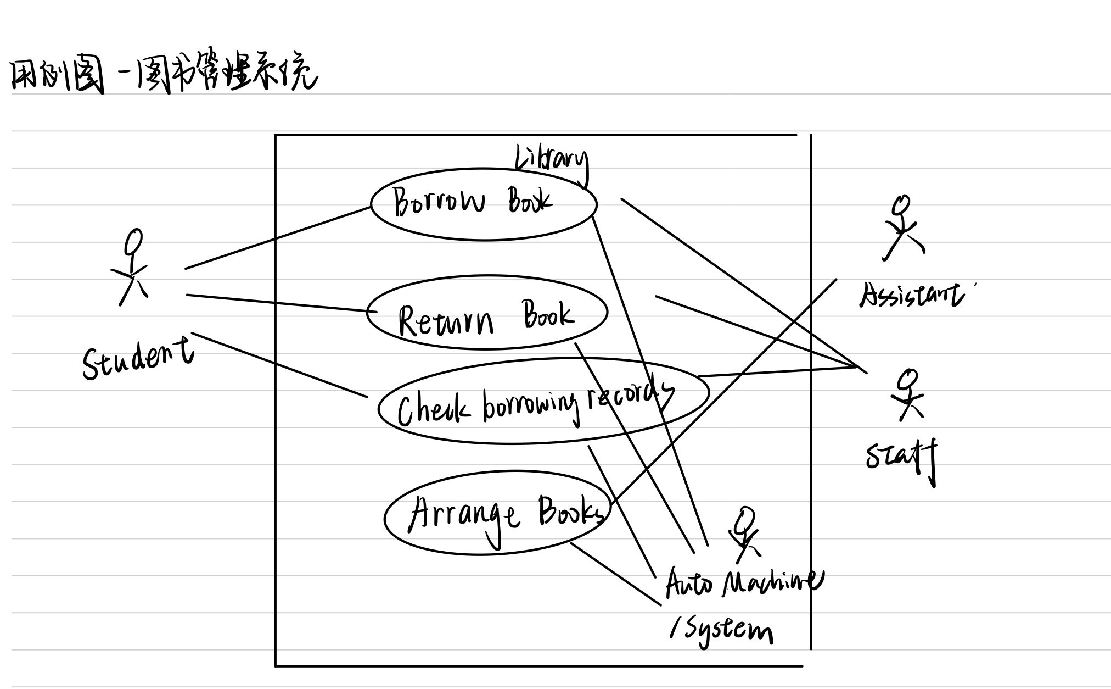 用例图-图书管理系统
Library
Borrow Book
Return Book
Check borrowing records
Arrange Books
Student
Assistant
Staff
Auto Machine
/System